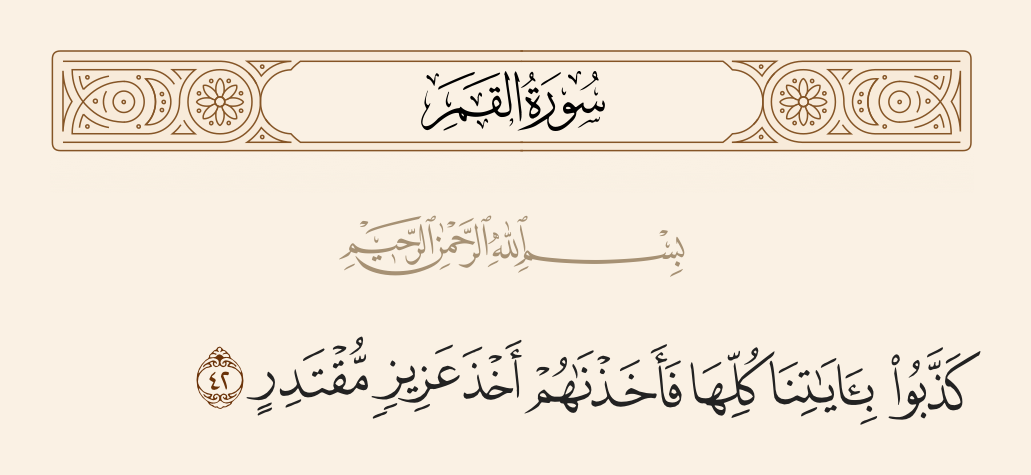 سُورَةُ القَمَرِ
بِسْمِ ٱللَّهِ ٱلرَّحْمَٰنِ ٱلرَّحِيمِ
كَذَّبُوا۟ بِـَٔايَـٰتِنَا كُلِّهَا فَأَخَذْنَـٰهُمْ أَخْذَ عَزِيزٍ مُّقْتَدِرٍ ٤٢